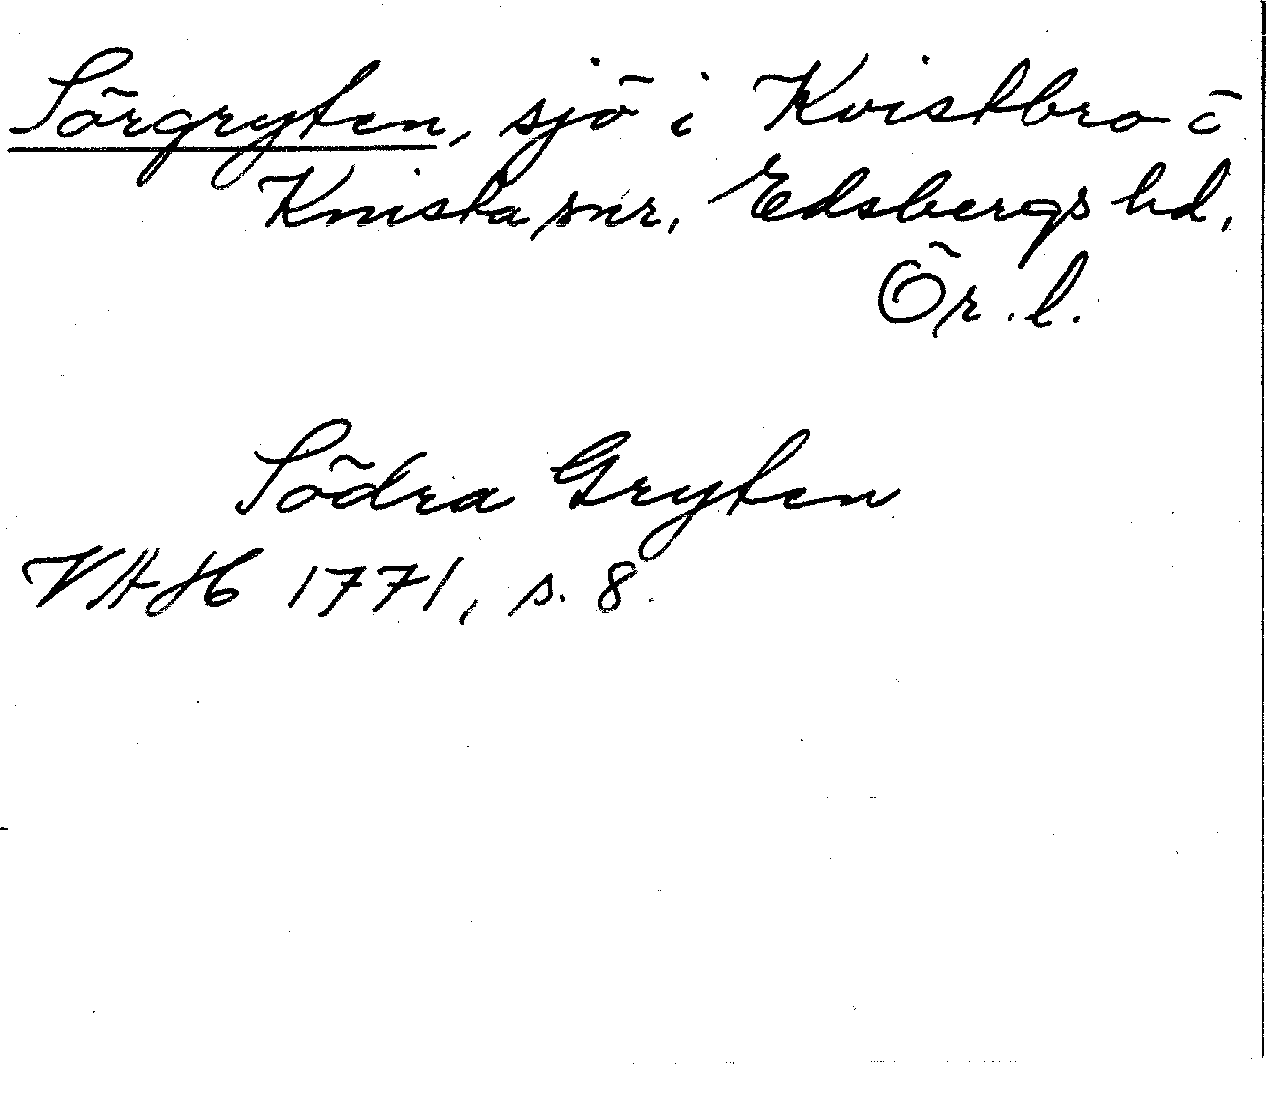 Sörgryten, sjö i Kvistbro o
Knista snr, Edsbergs hd,
Ör. l.
Södra Gryten
VAH 1771, s. 8.